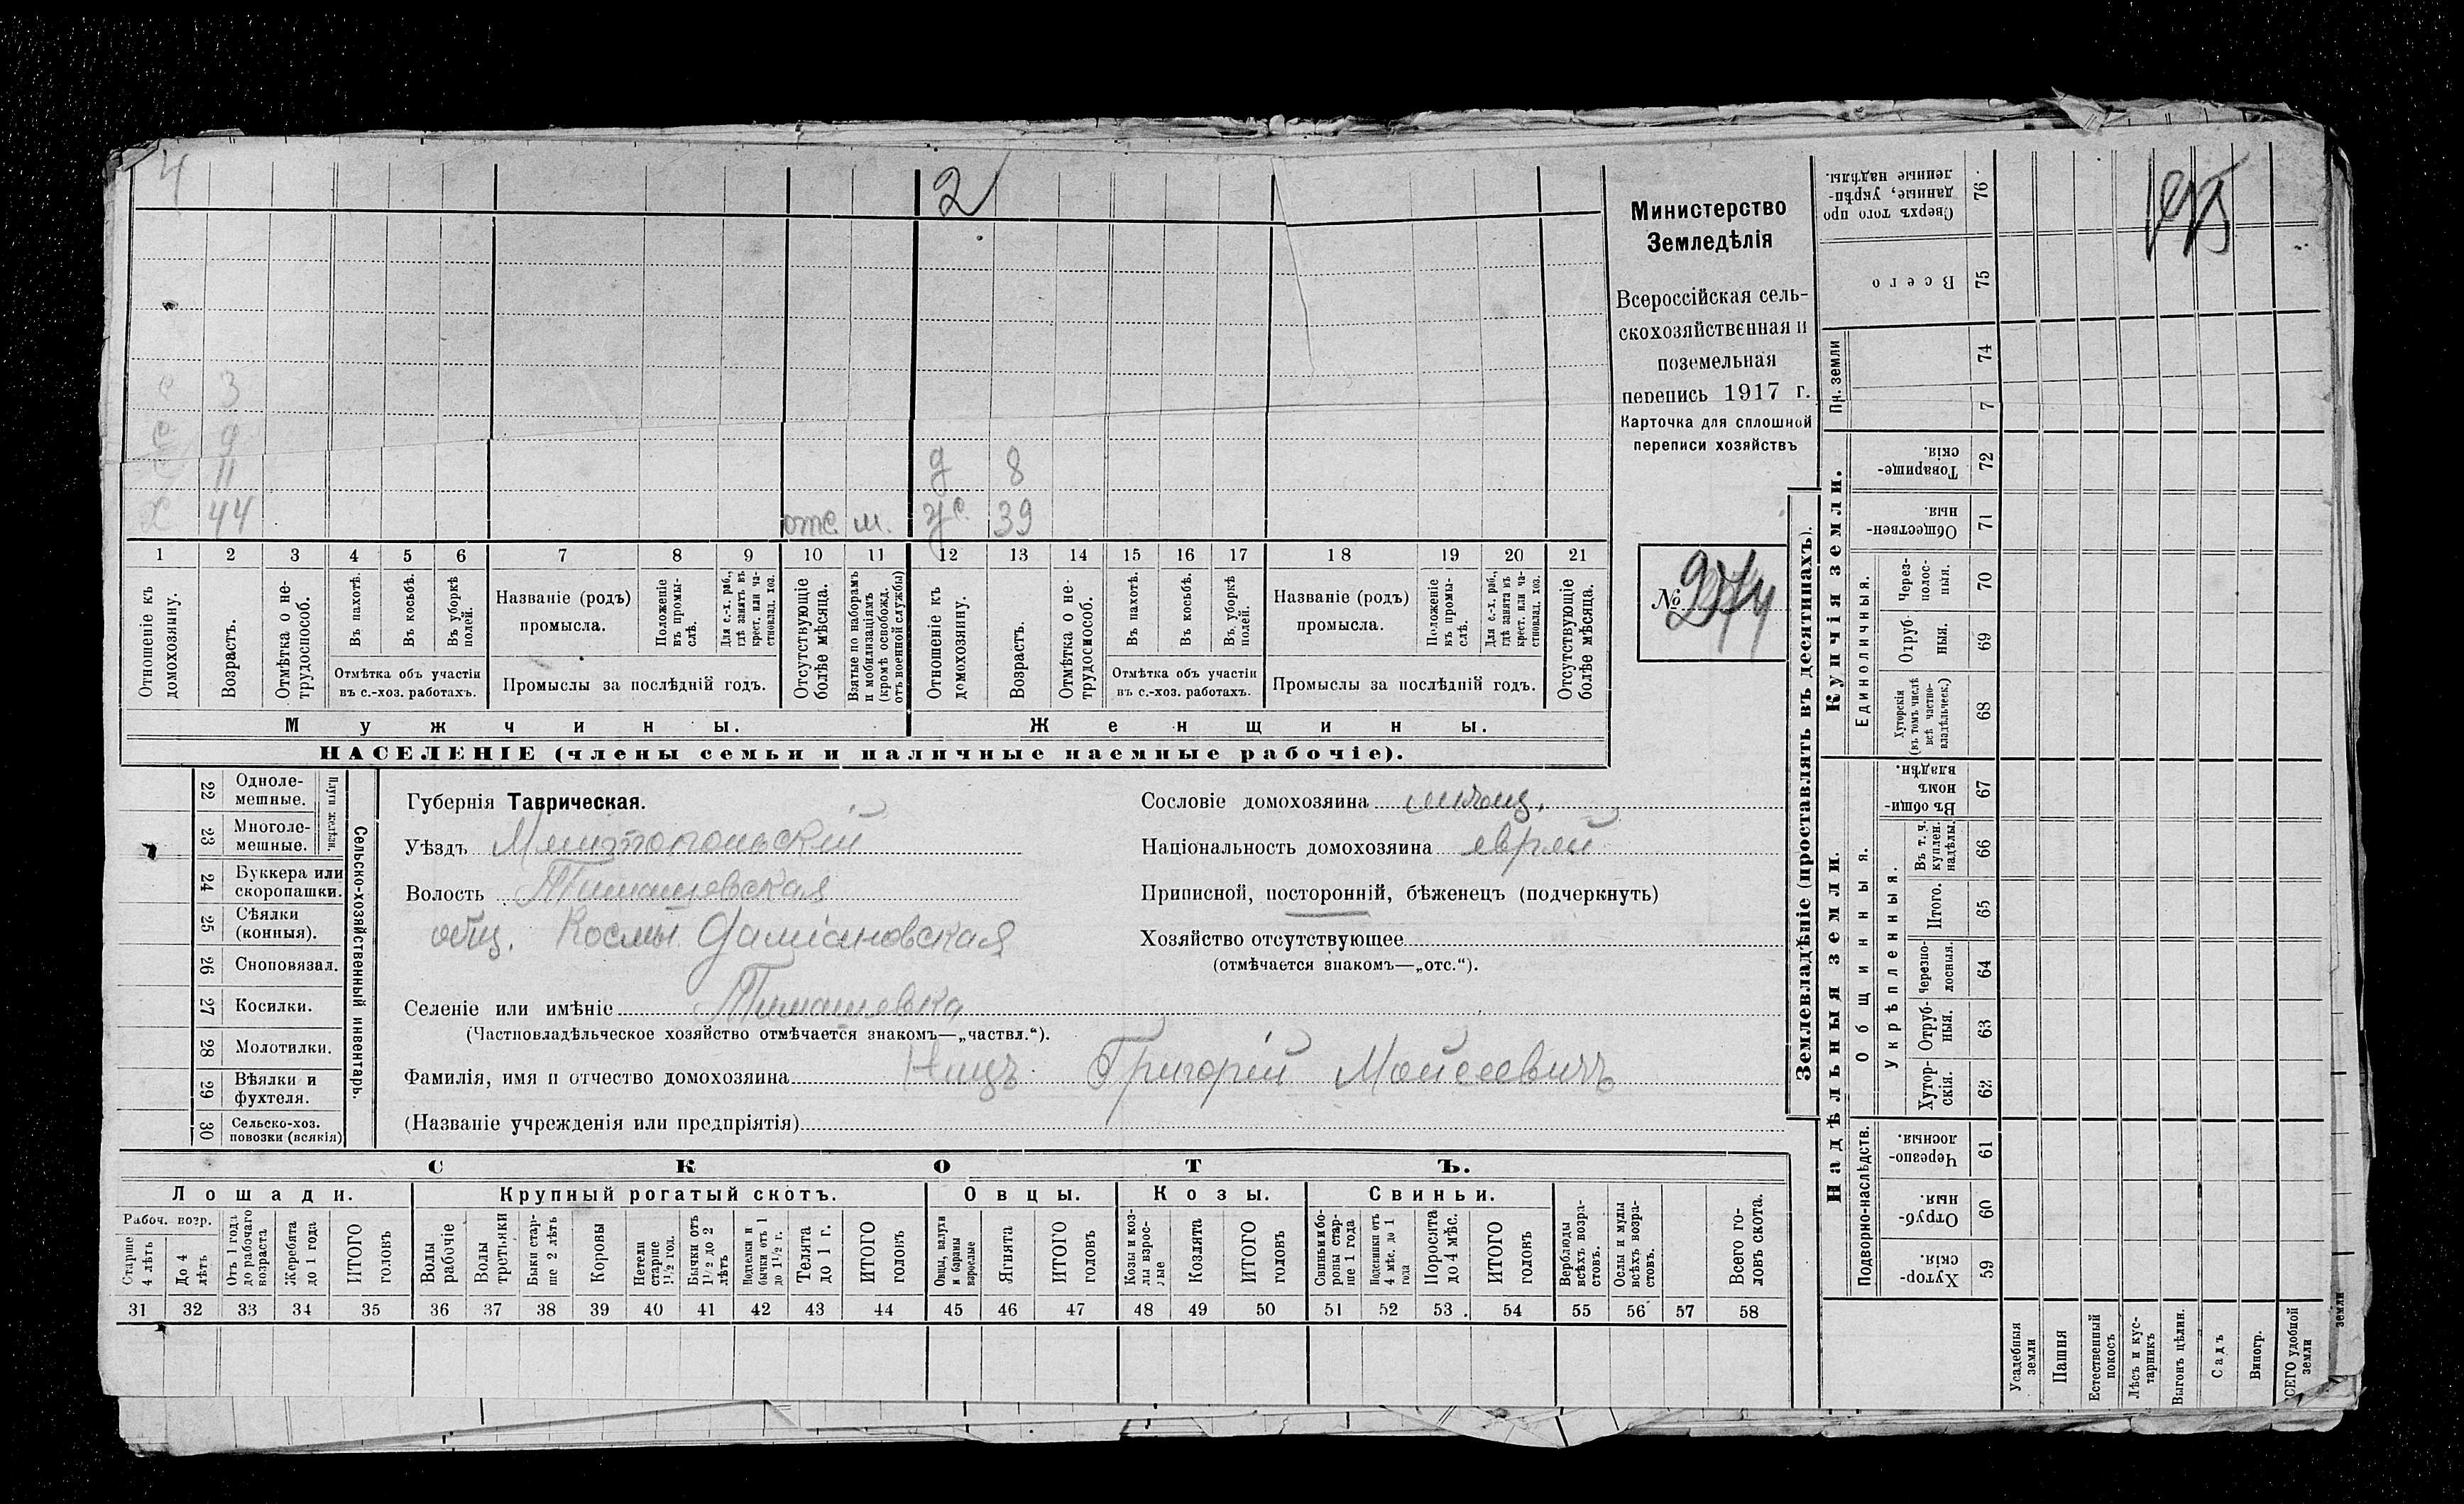 4
2
е 3
е 9
е 11
д 8
Х 44 отс. м. ж. 39
1 2 3 4 5 6 7 8 9 10 11 12 13 14 15 16 17 18 19 20 21
Отношеніе къ домохозяину.
Возрастъ.
Отмѣтка о нетрудоспособ.
Въ пахотѣ.
Въ косьбѣ.
Въ уборкѣ полей.
Отмѣтка объ участіи
въ с.-хоз. работахъ.
Названіе (родъ)
промысла.
Положеніе въ промыслѣ.
Для с.-х. раб., гдѣ занятъ въ крест. или частновлад. хоз.
Промыслы за послѣдній годъ.
Отсутствующіе болѣе мѣсяца.
Взятые по наборамъ и мобилизаціямъ (кромѣ освобожд. отъ военной службы)
Отношеніе къ домохозяину.
Возрастъ.
Отмѣтка о нетрудоспособ.
Въ пахотѣ.
Въ косьбѣ.
Въ уборкѣ полей.
Отмѣтка объ участіи
въ с.-хоз. работахъ.
Названіе (родъ)
промысла.
Положеніе въ промыслѣ.
Для с.-х. раб., гдѣ занята въ крест. или частновлад. хоз.
Промыслы за послѣдній годъ.
Отсутствующіе болѣе мѣсяца.
Мужчины. Женщины.
НАСЕЛЕНІЕ (члены семьи и наличные наемные рабочіе).
Министерство
Земледѣлія
Всероссійская сель-
скохозяйственная и
поземельная
перепись 1917 г.
Карточка для сплошной
переписи хозяйствъ
№ 274
22 Одноле-
мешные.
23 Многоле-
мешные.
24 Буккера или
скоропашки.
25 Сѣялки
(конныя).
26 Сноповязал.
27 Косилки.
28 Молотилки.
29 Вѣялки и
фухтеля.
30 Сельско-хоз.
повозки (всякія)
Сельско-хозяйственный инвентарь.
Губернія Таврическая.
Уѣздъ Мелитопольскій
Волость Тимашевская
общ. Космы Даміановская
Селеніе или имѣніе Тимашевка
(Частновладѣльческое хозяйство отмѣчается знакомъ—„частвл.“).
Фамилія, имя и отчество домохозяина Ницъ Григорій Мойсеевичъ
(Названіе учрежденія или предпріятія)
Сословіе домохозяина мѣщ.
Національность домохозяина еврей
Приписной, посторонній, бѣженецъ (подчеркнуть)
Хозяйство отсутствующее
(отмѣчается знакомъ—„отс.“).
СКОТЪ.
Лошади. Крупный рогатый скотъ. Овцы. Козы. Свиньи.
Рабоч. возр.
Старше 4 лѣтъ
До 4 лѣтъ
Отъ 1 года до рабочаго возраста
Жеребята до 1 года
ИТОГО головъ
Волы рабочіе
Волы третьяки
Быки старше 2 лѣтъ
Коровы
Петели старше 1½ год.
Бычки отъ 1½ до 2 лѣтъ
Подтелки и бычки отъ 1 до 1½ г.
Телята до 1 г.
ИТОГО головъ
Овцы, валухи и бараны взрослые
Ягнята
ИТОГО головъ
Козы и козлы взрослые
Козлята
ИТОГО головъ
Свиньи и боровы старше 1 года
Подсвинки отъ 4 мѣс. до 1 года
Поросята до 4 мѣс.
ИТОГО головъ
Верблюды всѣхъ возрастовъ.
Ослы и мулы всѣхъ возрастовъ.
Всего головъ скота.
31 32 33 34 35 36 37 38 39 40 41 42 43 44 45 46 47 48 49 50 51 52 53 54 55 56 57 58
Землевладѣніе (проставлять въ десятинахъ).
Надѣльныя земли. Купчія земли. Пн. земли
Подворно-наслѣдств.
Общинныя.
Укрѣпленныя.
Единоличныя.
Хуторскія. 59
Отрубныя. 60
Черезполосныя. 61
Хуторскія. 62
Отрубныя. 63
Черезполосныя. 64
Итого. 65
Въ т. ч. куплен. надѣлы. 66
Въ общинномъ владѣн. 67
Хуторскія (въ томъ числѣ всѣ частновладѣльческ.) 68
Отрубныя. 69
Черезполосныя. 70
Общественныя. 71
Товарищескія. 72
7
74
Всего 75
Сверхъ того проданные, укрѣпленные надѣлы. 76
Усадебныя земли
Пашня
Естественный покосъ
Лѣсъ и кустарникъ
Выгонъ цѣлин.
Садъ
Виногр.
СЕГО удобной земли
земли